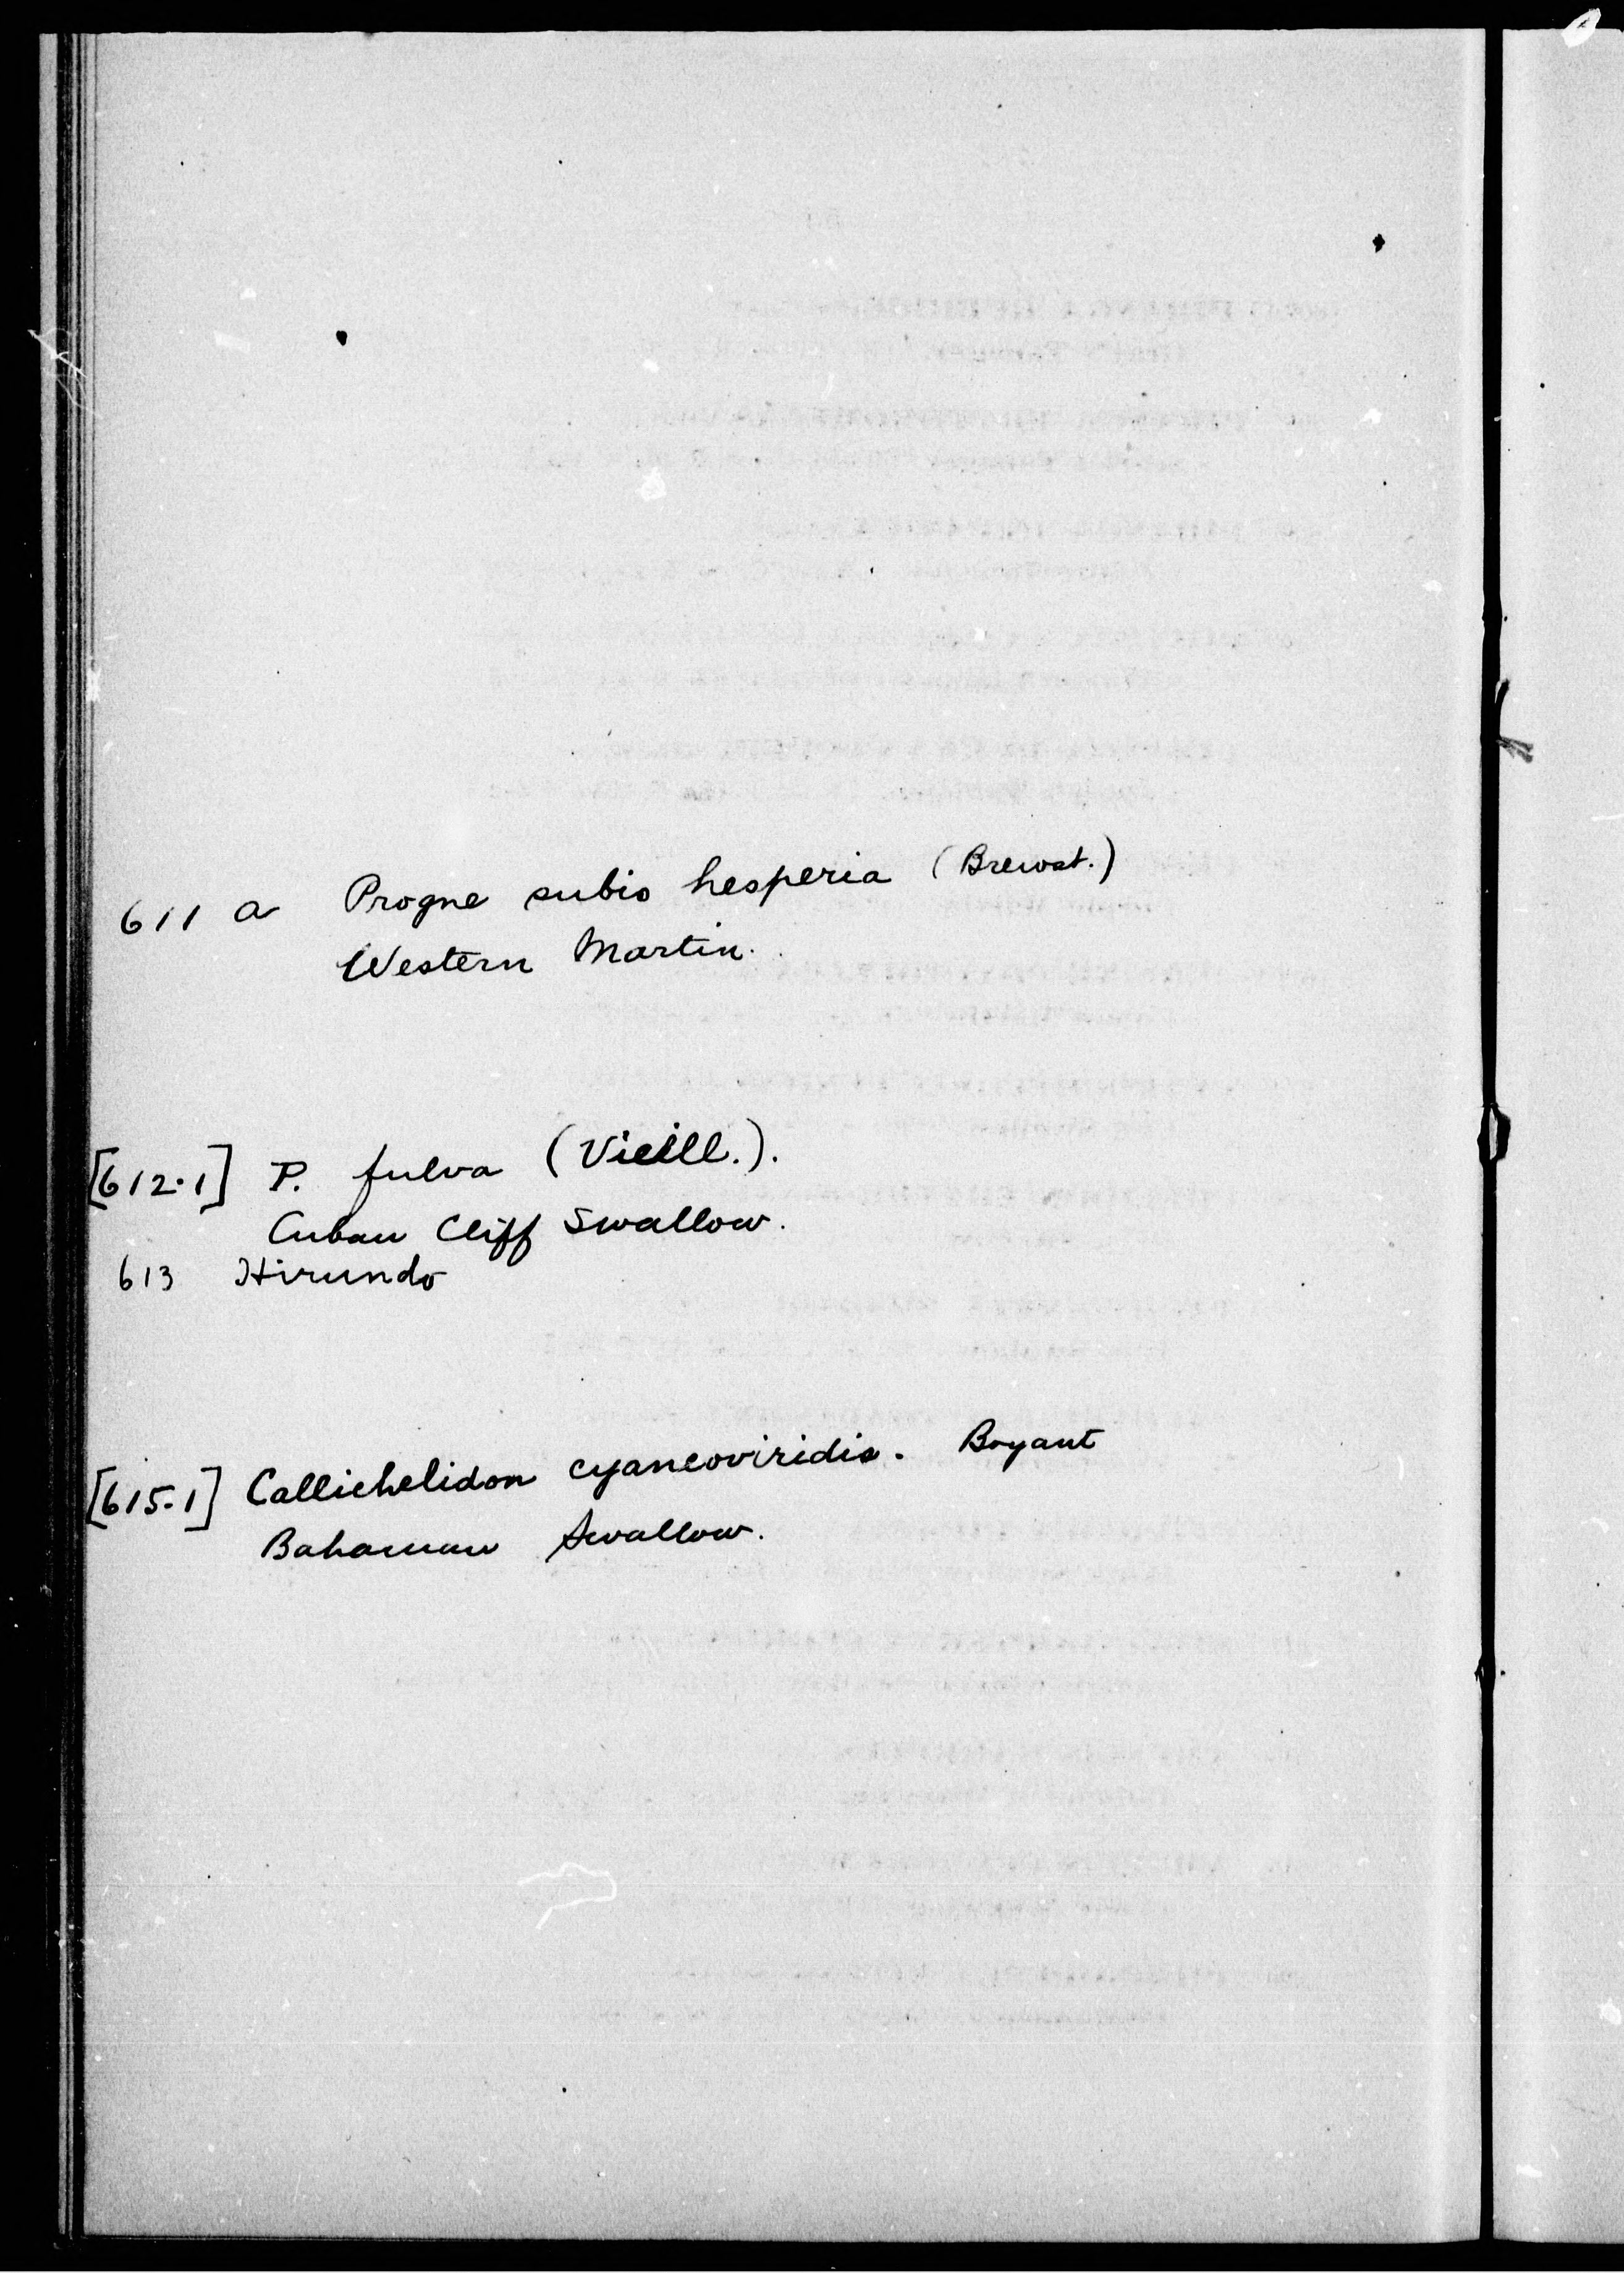 611 a Progne subis hesperia (Brewst.)
Western Martin.
[612.1] P. fulva (Vieill.).
Cuban Cliff Swallow.
613 Hirundo
[615.1] Callichelidon cyaneoviridis. Bryant
Bahaman Swallow.